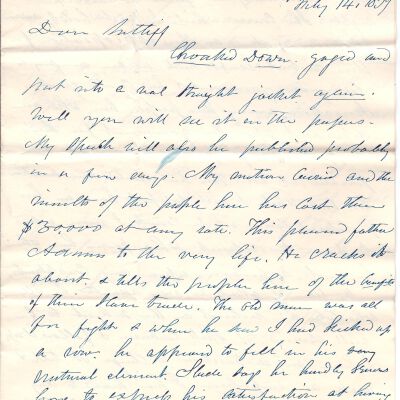 July 14. 1839
Dear Sutliff
Choaked Down. gaged and
put into a real straight jacket again.
Well you will see it in the papers.
My Speech will also be published probably
in a few days. My motion carried and the
insults of the people here has cost them
$30,000 at any rate. This pleased father
Adams to the very life. He cracks it
about. & tells the people here of the benefits
of their Slave trade. The old man was all
for fight & when he saw I had kicked up
a row. he appeared to feel in his very
natural element. Slade says he hardly knows
how to express his satisfaction at having